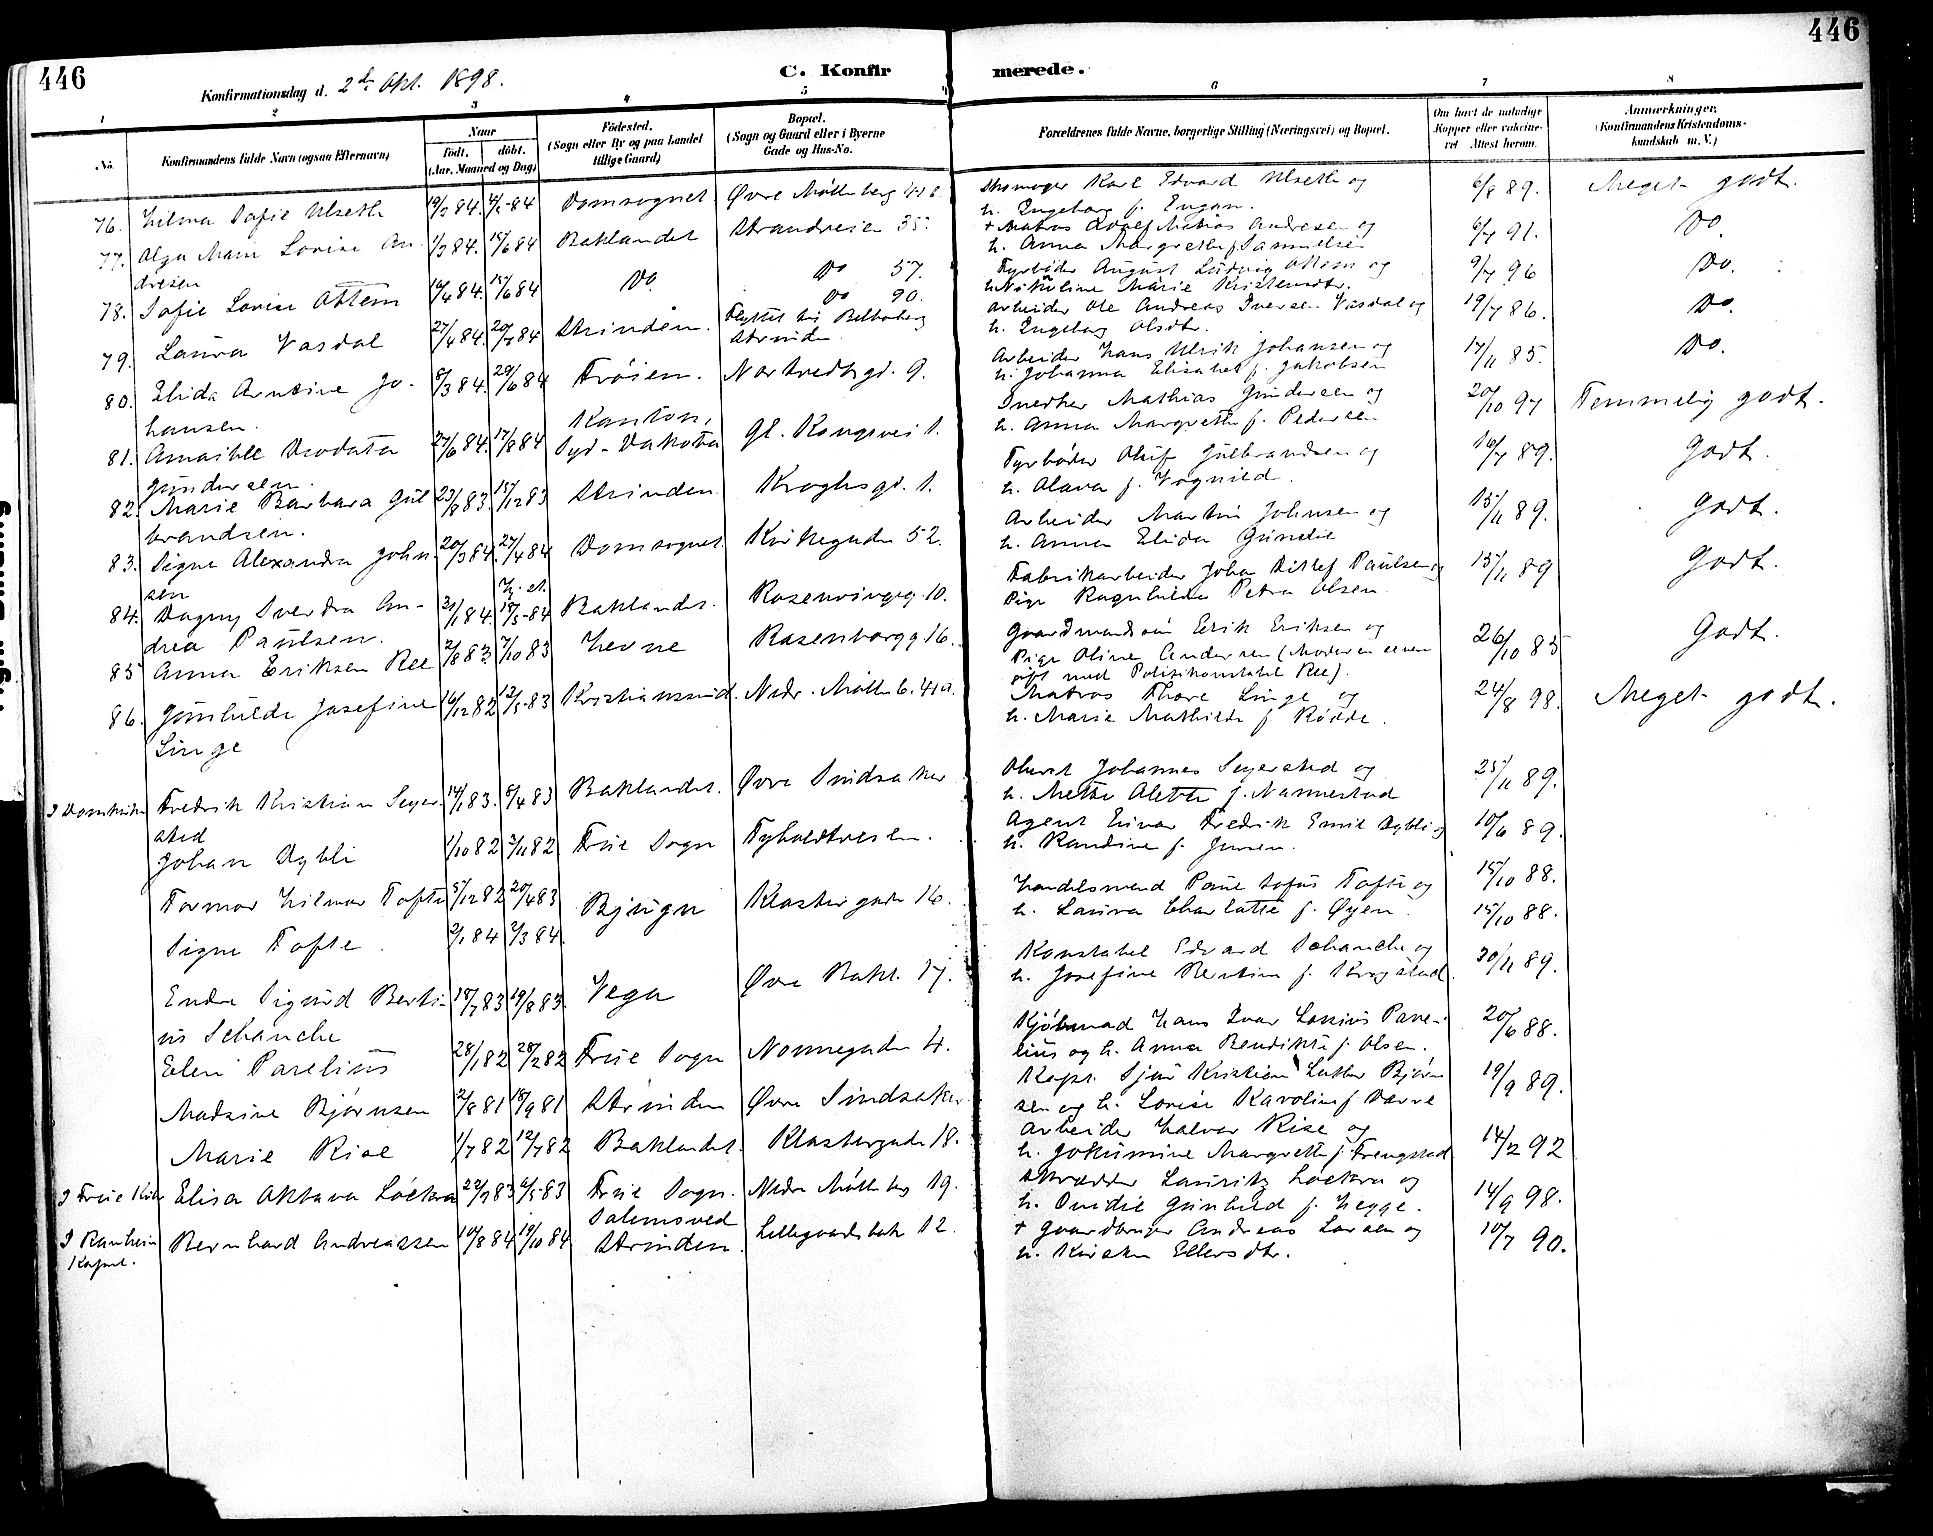 446
446
Konfirmationsdag d. 2den Okt. 1898.
C. Konfirmerede.
1 2 3 4 5 6 7 8
No
Konfirmandens fulde Navn (ogsaa Efternavn)
Naar
födt. döbt.
(Aar, Maaned og Dag)
Födested.
(Sogn eller By og paa Landet
tillige Gaard)
Bopæl.
(Sogn og Gaard eller i Byerne
Gade og Hus-No.
Forældrenes fulde Navne, borgerlige Stilling (Næringsvei) og Bopæl.
Om havt de naturlige
Kopper eller vaccineret
Attest herom.
Anmærkninger.
(Konfirmandens Kristendomskundskab
m. V.)
76. Hilma Sofie Ulseth 84. 84 Domsognet Øvre Mølleberg 41 b. Skomager Karl Edvard Ulseth og 6/8 89. Meget godt.
h. Ingeborg f. Engan.
77. Olga Marie Lovise An- 1/3 84. 15/6 84 Baklandet Strandveien 35. + Matros Adolf Matias Andresen og 91. Do.
dresen h. Anna Margrethe f. Samuelsen
78. Sofie Lovise Ottem 84. 15/6 84 Do. Do 57. Fyrbøder August Ludvig Ottem og 9/7 96 Do.
h. Nikoline Marie Kristensdtr.
79. Laura Vasdal 27/4 84. 84 Strinden. Do 90. Arbeider Ole Andreas Iversen Vasdal og 19/7 86. Do.
Flyttet til
Strinden. h. Engeborg Olsdtr.
80. Elida Arntine Jo- 8/3 84. 29/6 84 Frøien. Nordredtsgd. 9. Arbeider Hans Ulrik Johansen og 17/11 85. Do.
hansen. h. Johanna Elisabet f. Jakobsen
81. Deodata 27/6 84. 17/8 84 Kanton, Gl. Kongevei 1. Snedker Mathias Gundersen og 20/10 97 Temmelig godt.
Gundersen. Syd-Dakota h. Anna Margrethe f. Pedersen
82. Marie Barbara Gul- 23/8 83. 15/12 83 Strinden. Kroghsgt. 1. Fyrbøder Oluf Gulbrandsen og 16/7 89. Godt.
brandsen. h. Olava f. Vognild.
83. Signe Alexandra John- 20/3 84. 27/4 84 Domsognet Kirkegaden 52. Arbeider Martin Johnsen og 15/11 89. Godt.
sen h. Anna Elida Gundie
84. Dagny Sverdra An- 21/1 84. 18/5 84 Baklandet. Rosenvinges 10. Fabrikarbeider Johan Ditlef Paulsen og 15/11 89 Godt.
drea Paulsen. Pige Ragnhilda Petra Olsen.
85 Anna Eriksen Ree 2/8 83. 7/10 83 Hevne Rosenborgg 16. Gaardmandssøn Erik Eriksen og 26/10 85 Godt.
Pige Oline Andersen (Moderen
gift med Politikonstabel Ree).
86. Gunhilde Josefine 16/12 82 13/5 83 Kristianssund. Nedr. Mølleb. 41a. Matros Thore Linge og 24/8 98. Meget godt.
Linge h. Marie Mathilde f. Rødde.
I Domkirken Fredrik Kristian Seger- 14/1 83. 8/4 83 Baklandet. Øvre Sindsaker Oberst Johannes Segersted og 25/11 89.
sted h. Mette Aletta f. Nannestad
Johan Dybli 1/10 82 3/11 82 Frue Sogn Tyholdtveien. Agent Einar Fredrik Emil Dybli og 89.
h. Randine f. Jensen.
Tormor Hilmar Tofte 5/12 82 20/4 83 Bjugn Klostergaden 16. Handelsmand Paul Sofus Tofte og 15/10 88.
Signe Tofte. 2/1 84 2/3 84. h. Laura Charlotte f. Øyen. 15/10 88.
Endre Sigurd Berti- 18/7 83 19/8 83. Vega Øvre Bakl. 17. Konstabel Edvard Schanche og 30/11 89.
us Schanche h. Josefine Bertine f. Krogstad.
Elen Parelius 28/1 82 28/2 82 Frue Sogn Nonnegaden 4. Kjøbmad Hans Ivar Lossius Pare- 20/6 88.
lius og h. Anna Bendikte f. Olsen.
Madsine Bjørnsen 2/8 81 18/9 81 Strinden Øvre Sindsaker Kapt. Sjur Kristian Luther Bjørn- 19/9 89.
sen og h. Lovise Karoline f. Værre
Marie Rise 1/7 82 12/7 82 Baklandet. Klostergaden 18. Arbeider Halvor Rise og 14/2 92
h. Jokumine Margrethe f. Trengstad
I Frue Kirke Elisa Oktava Løckra 83 83 Frue Sogn. Nedre Mølleberg 19. Skrædder Lauritz Løckra og 14/9 98.
h. Ovidie Gunhild f. Hegge.
I Ranheim Bernhard Andreassen 10/8 84 19/10 84 Strinden. 12. + Gaardbruger Andreas Larsen og 10/7 90.
Kapel. h. Kirsten Ellevsdtr.